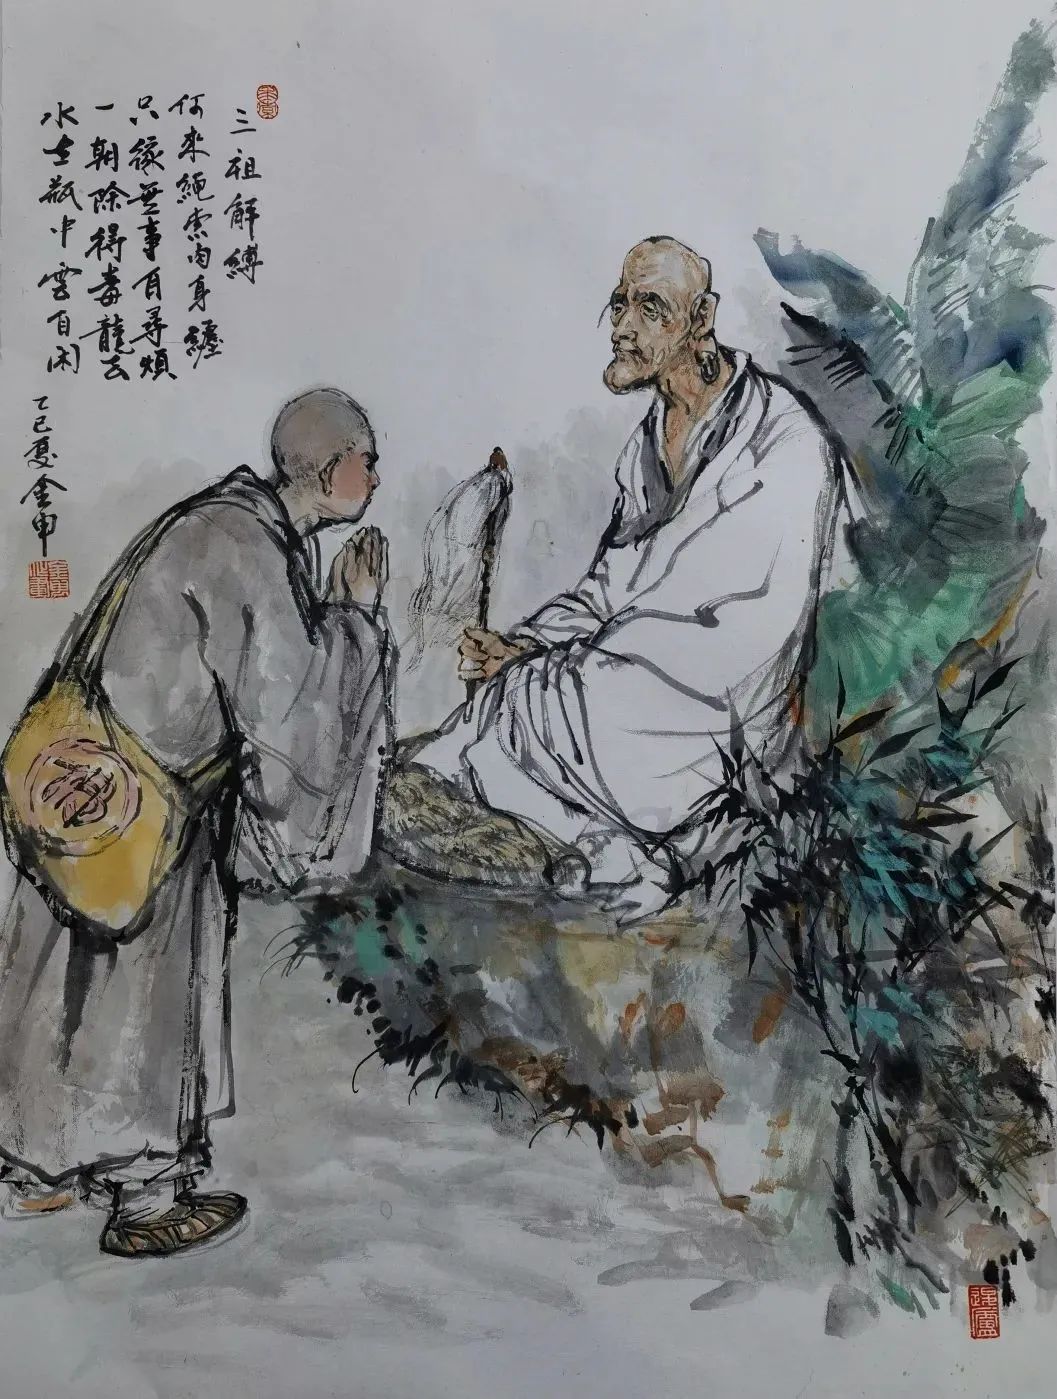 三祖解縛
何來繩索肉身纏
只緣無事自尋煩
一朝除得毒龍去
水在瓶中雲自闲
乙巳夏金申